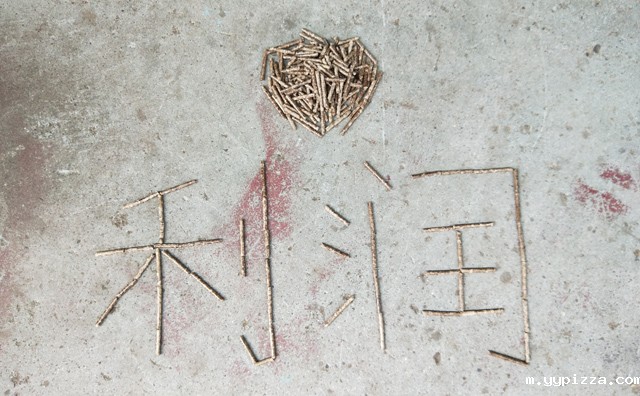 利润
m.yypizza.com